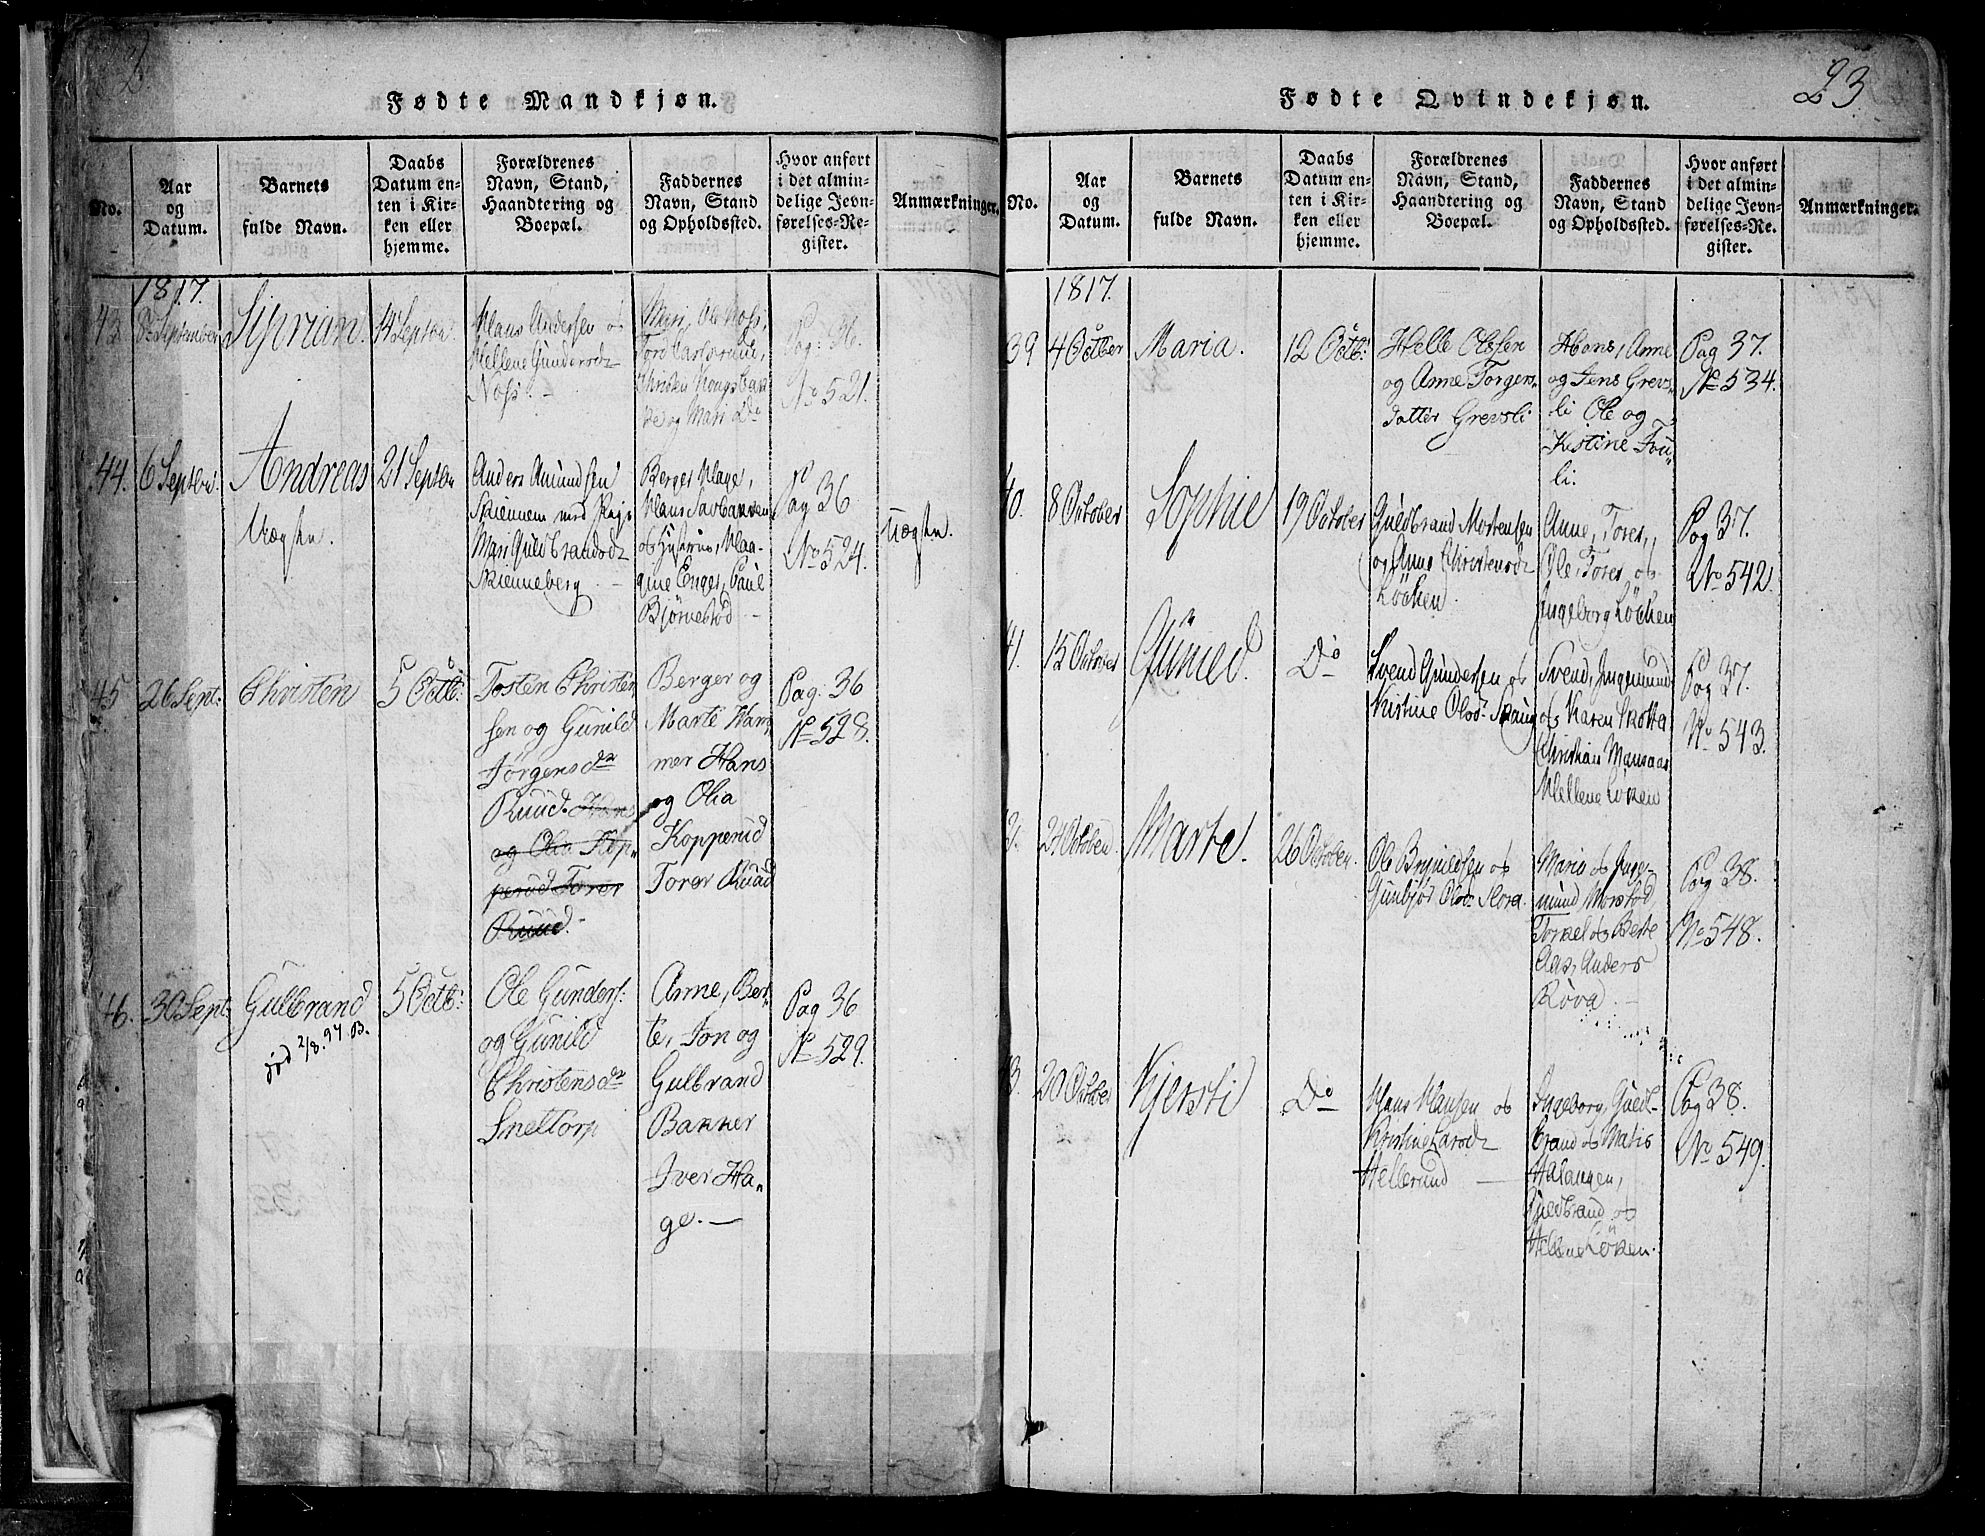 Fødte Mandkjøn.
No.
Aar
og
Datum.
Barnets
fulde Navn.
Daabs
Datum en-
ten i Kir-
ken eller
hjemme.
Forældrenes
Navn, Stand,
Haandtering og
Boepæl.
Faddernes
Navn, Stand
og Opholdssted.
Hvor anført
i det almin-
delige Jevn-
førelses-Re-
gister.
Anmærkninger.
1817.
43.
8de September
14 Septbr.
Hans Andersen og
Hellene Gundersdt
Mari, Ole
Christen Kongsbak-
ke og Mari Do
Pag: 36.
No 521.
44.
6 Septbr.
Andreas
21 Septbr
Anders Amundsen
Skiennem med Pige
Mari Guldbrandsdt
Skienneberg.
Berger Klage,
Hans
Enger, Paul
Bjørnestød
Pag 36
No 524.
Uægte.
Uægte.
45
26 Sept:
Christen
5 Octb:
Tosten Christen
sen og Gunild
Jørgensdr
Ruud. Hans
og Olia Kop„
perud Torer
Ruud.
Berger og
Marte Ham„
mer Hans
og Olia
Kopperud
Torer Ruud
Pag: 36
No 528.
46.
30 Sept:
Gulbrand
5 Octb:
Ole Gunders:
og Gunild
Christensdr
Snettorp
Anne, Ber„
te, Jon og
Gulbrand
Bakker
Iver Ha„
ge. —
Pag 36
No 529.
død 2/8. 97. B.
23
Fødte Qvindekjøn.
No.
Aar
og
Datum.
Barnets
fulde Navn.
Daabs
Datum en-
ten i Kir-
ken eller
hjemme.
Forældrenes
Navn, Stand,
Haandtering og
Boepæl.
Faddernes
Navn, Stand
og Opholdssted.
Hvor anført
i det almin-
delige Jevn-
førelses-Re-
gister.
Anmærkninger.
1817.
39
4 Octber
Maria.
12 Octb:
Helle Olssen
og Anne Torgers„
datter Grevsli
Hans, Anne
og Jens Grevs„
li Ole og
Kistine Fou„
li.
Pag 37.
No 534.
40.
8 October
Sophie
19 October
Guldbrand Mortensen
og Anne Christensdt
Løcken.
Anne, Tores,
Ole, Tores og
Ingeborg Løcken
Pag 37.
No 542.
41.
15 October
Gunild.
Do
Svend Gundersen og
Kristine Olsdr Skaug
Svend, Ingemund
og Karen Skotta
Christian Mansaas
Hellene Løken
Pag 37.
No 543.
October.
Marte.
26 October.
Ole Brynildsen og
Gunbjør Olsdr Slora.
Maria og Inge-
mund Morstød,
Torkel og Berte
Aas, Anders
Røva. —
Pag 38.
No 548.
20 October
Kjersti
Do
Hans Hansen og
Kristine Larsdt
Hellerud —
Ingeborg, Guld-
brand og Matis
Halangen,
Guldbrand og
Hellene Løken.
Pag 38.
No 549.